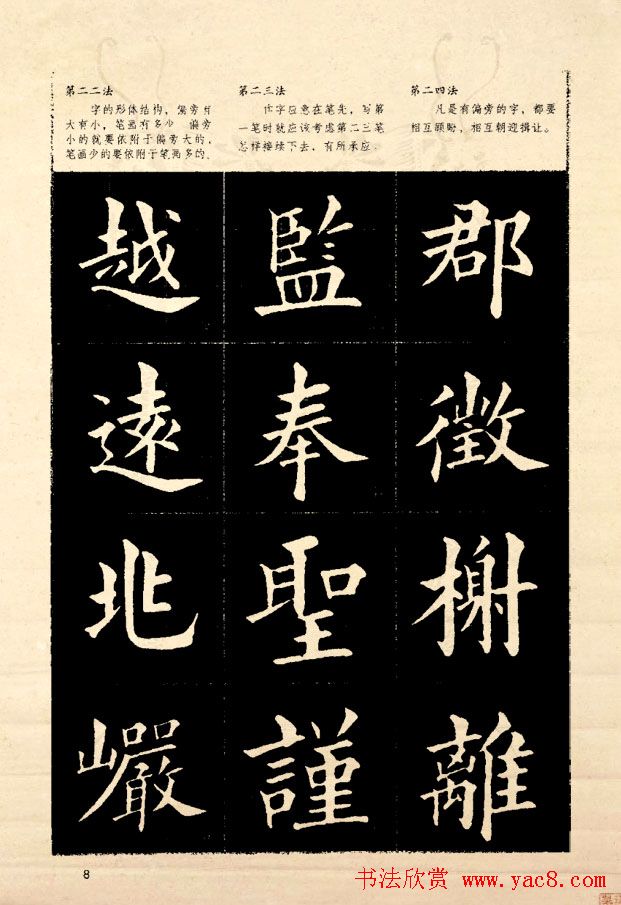 第二二法
字的形体结构，偏旁有
大有小，笔画有多少，偏旁
小的就要依附于偏旁大的，
笔画少的要依附于笔画多的。
第二三法
作字应意在笔先，写第
一笔时就应该考虑第二三笔
怎样接续下去，有所承应。
第二四法
凡是有偏旁的字，都要
相互顾盼，相互朝迎揖让。
越 監 郡
遠 奉 徵
北 聖 榭
巖 謹 離
8
书法欣赏 www.yac8.com